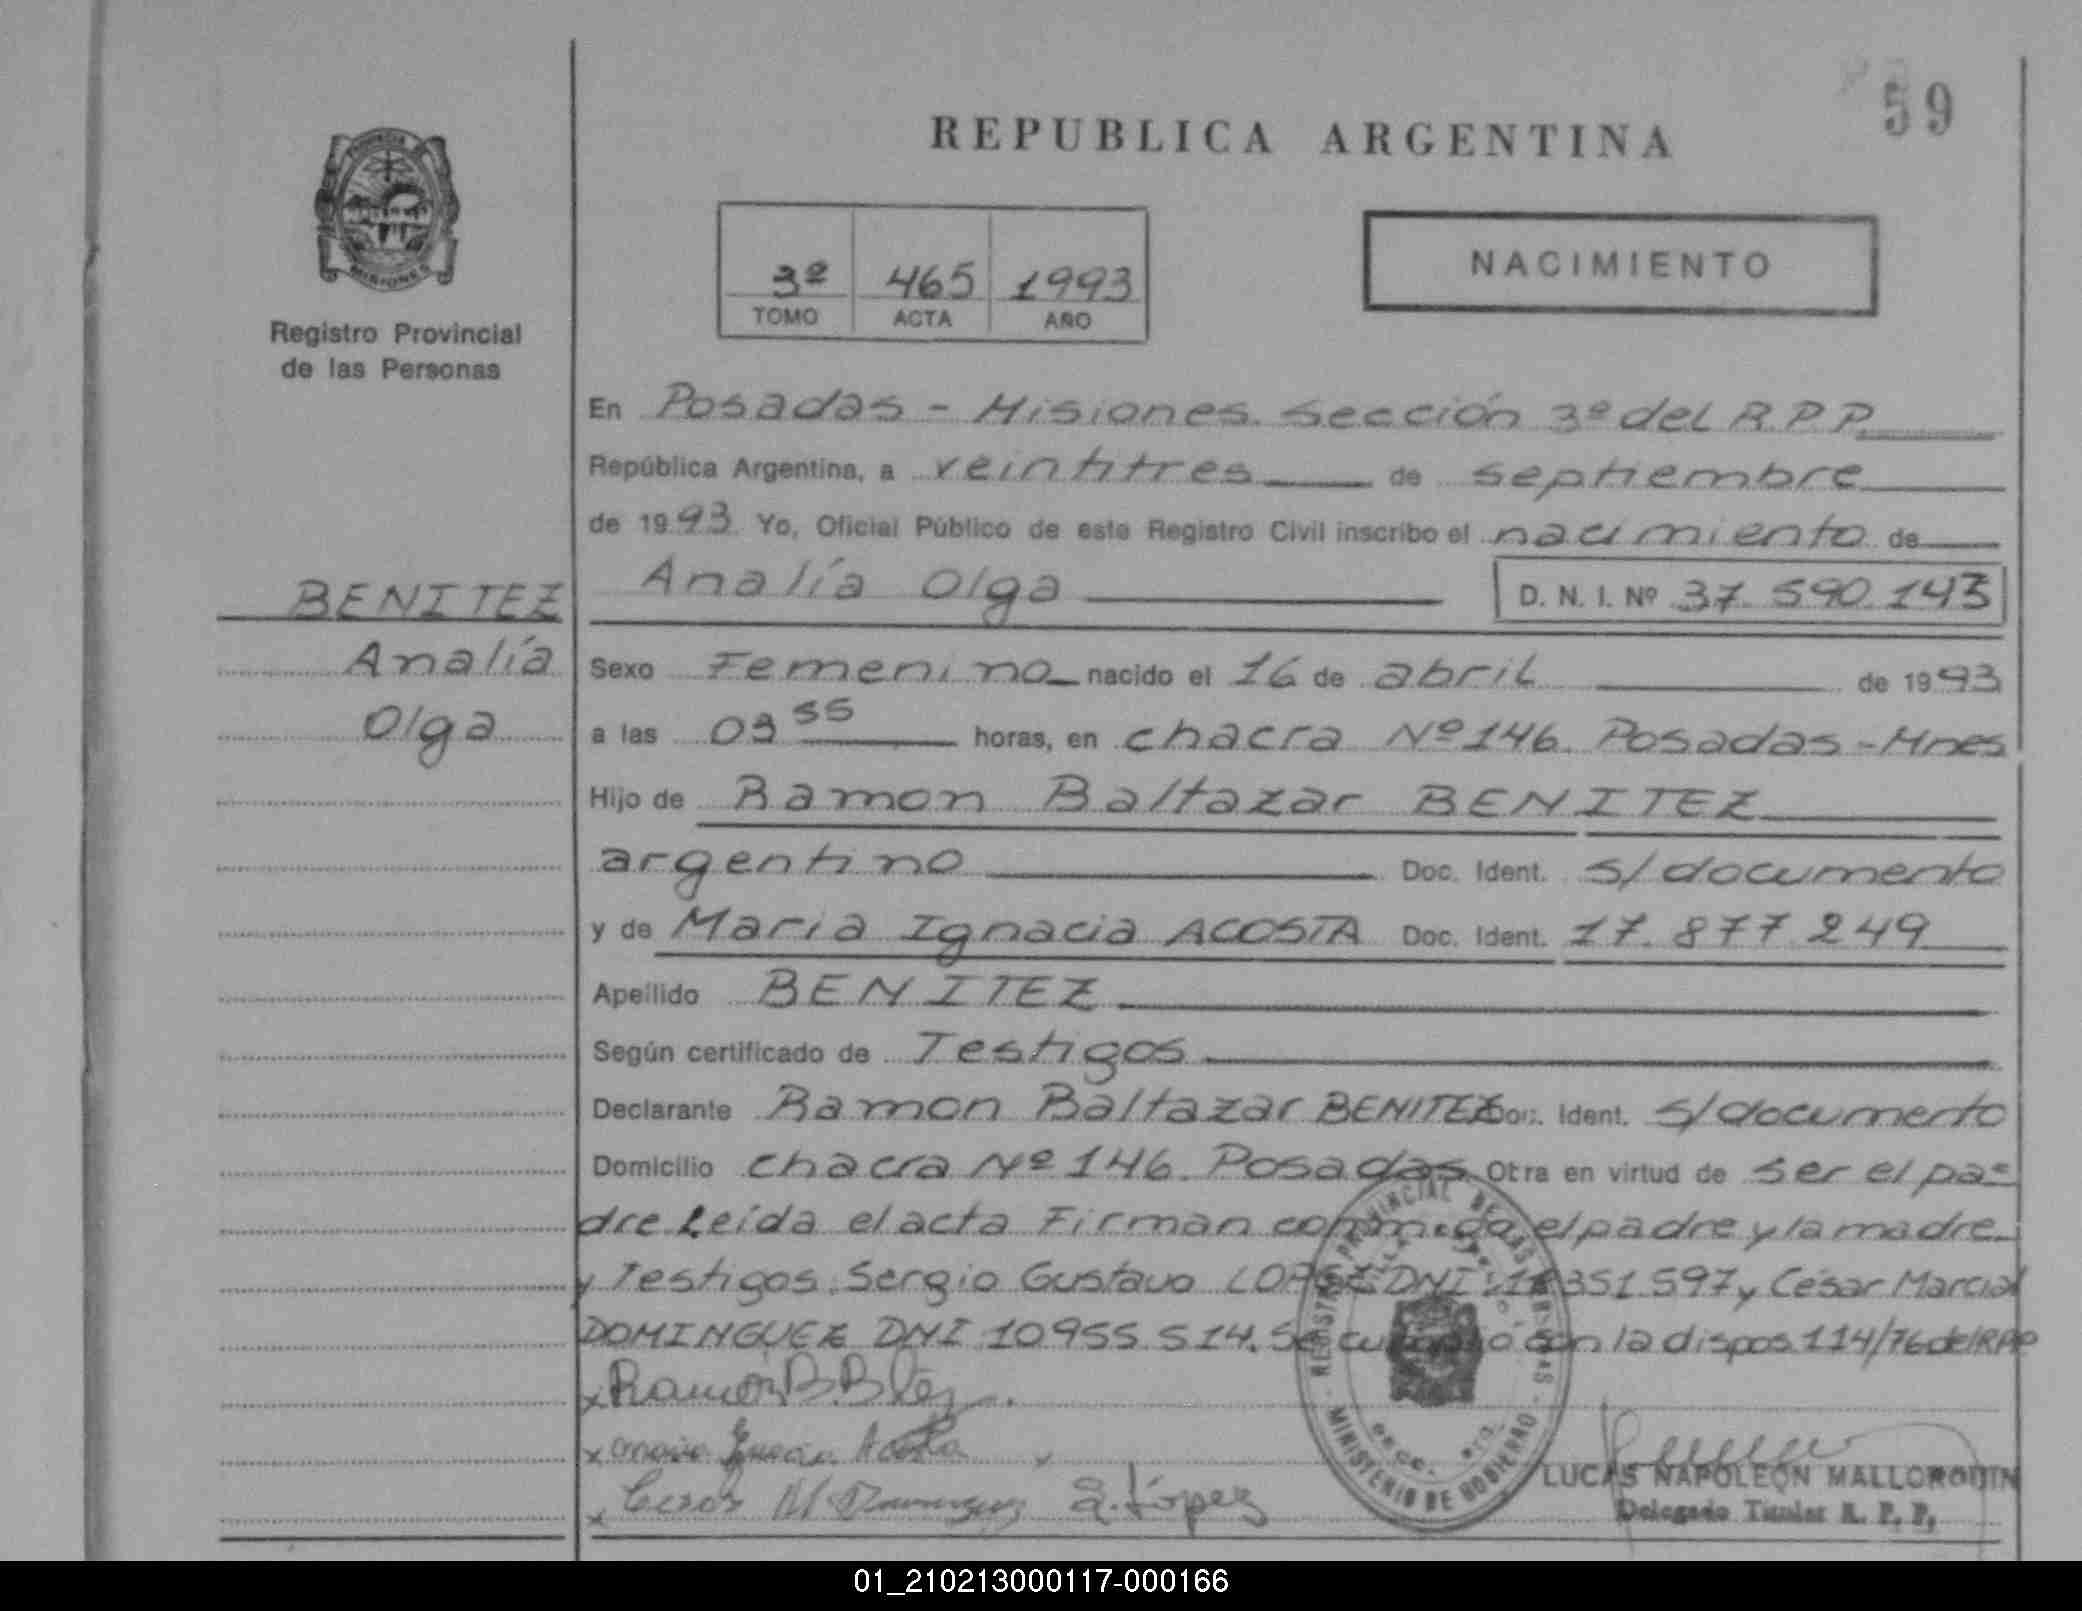 59
REPUBLICA ARGENTINA
PROVINCIA DE
MISIONES
Registro Provincial
de las Personas
3º 465 1993
TOMO ACTA AÑO
NACIMIENTO
En Posadas - Misiones. Sección 3º del R.P.P.
República Argentina, a veintitres de septiembre
de 1993. Yo, Oficial Público de este Registro Civil inscribo el nacimiento de
Analía Olga D. N. I. Nº 37.590.143
BENITEZ
Analía
Olga
Sexo Femenino nacido el 16 de abril de 1993
a las 03 55 horas, en chacra Nº 146. Posadas - Mnes
Hijo de Ramon Baltazar BENITEZ
argentino Doc. Ident. s/documento
y de Maria Ignacia ACOSTA Doc. Ident. 17.877.249
Apellido BENITEZ
Según certificado de Testigos
Declarante Ramon Baltazar BENITEZ Doc. Ident. s/documento
Domicilio chacra Nº 146. Posadas Otra en virtud de ser el pa=
dre Leída el acta Firman conmigo el padre y la madre
y Testigos: Sergio Gustavo LOPEZ DNI: 351.597 y César Marcial
DOMINGUEZ DNI 10955.514. Se cumplio con la dispos 114/76 del RPP
x Ramón B. Btez.
x Maria Ignacia Acosta
x Cesar M. Dominguez S. López
REGISTRO PROVINCIAL DE LAS PERSONAS
MINISTERIO DE GOBIERNO
LUCAS NAPOLEON MALLORQUIN
Delegado Titular R. P. P.
01_210213000117-000166